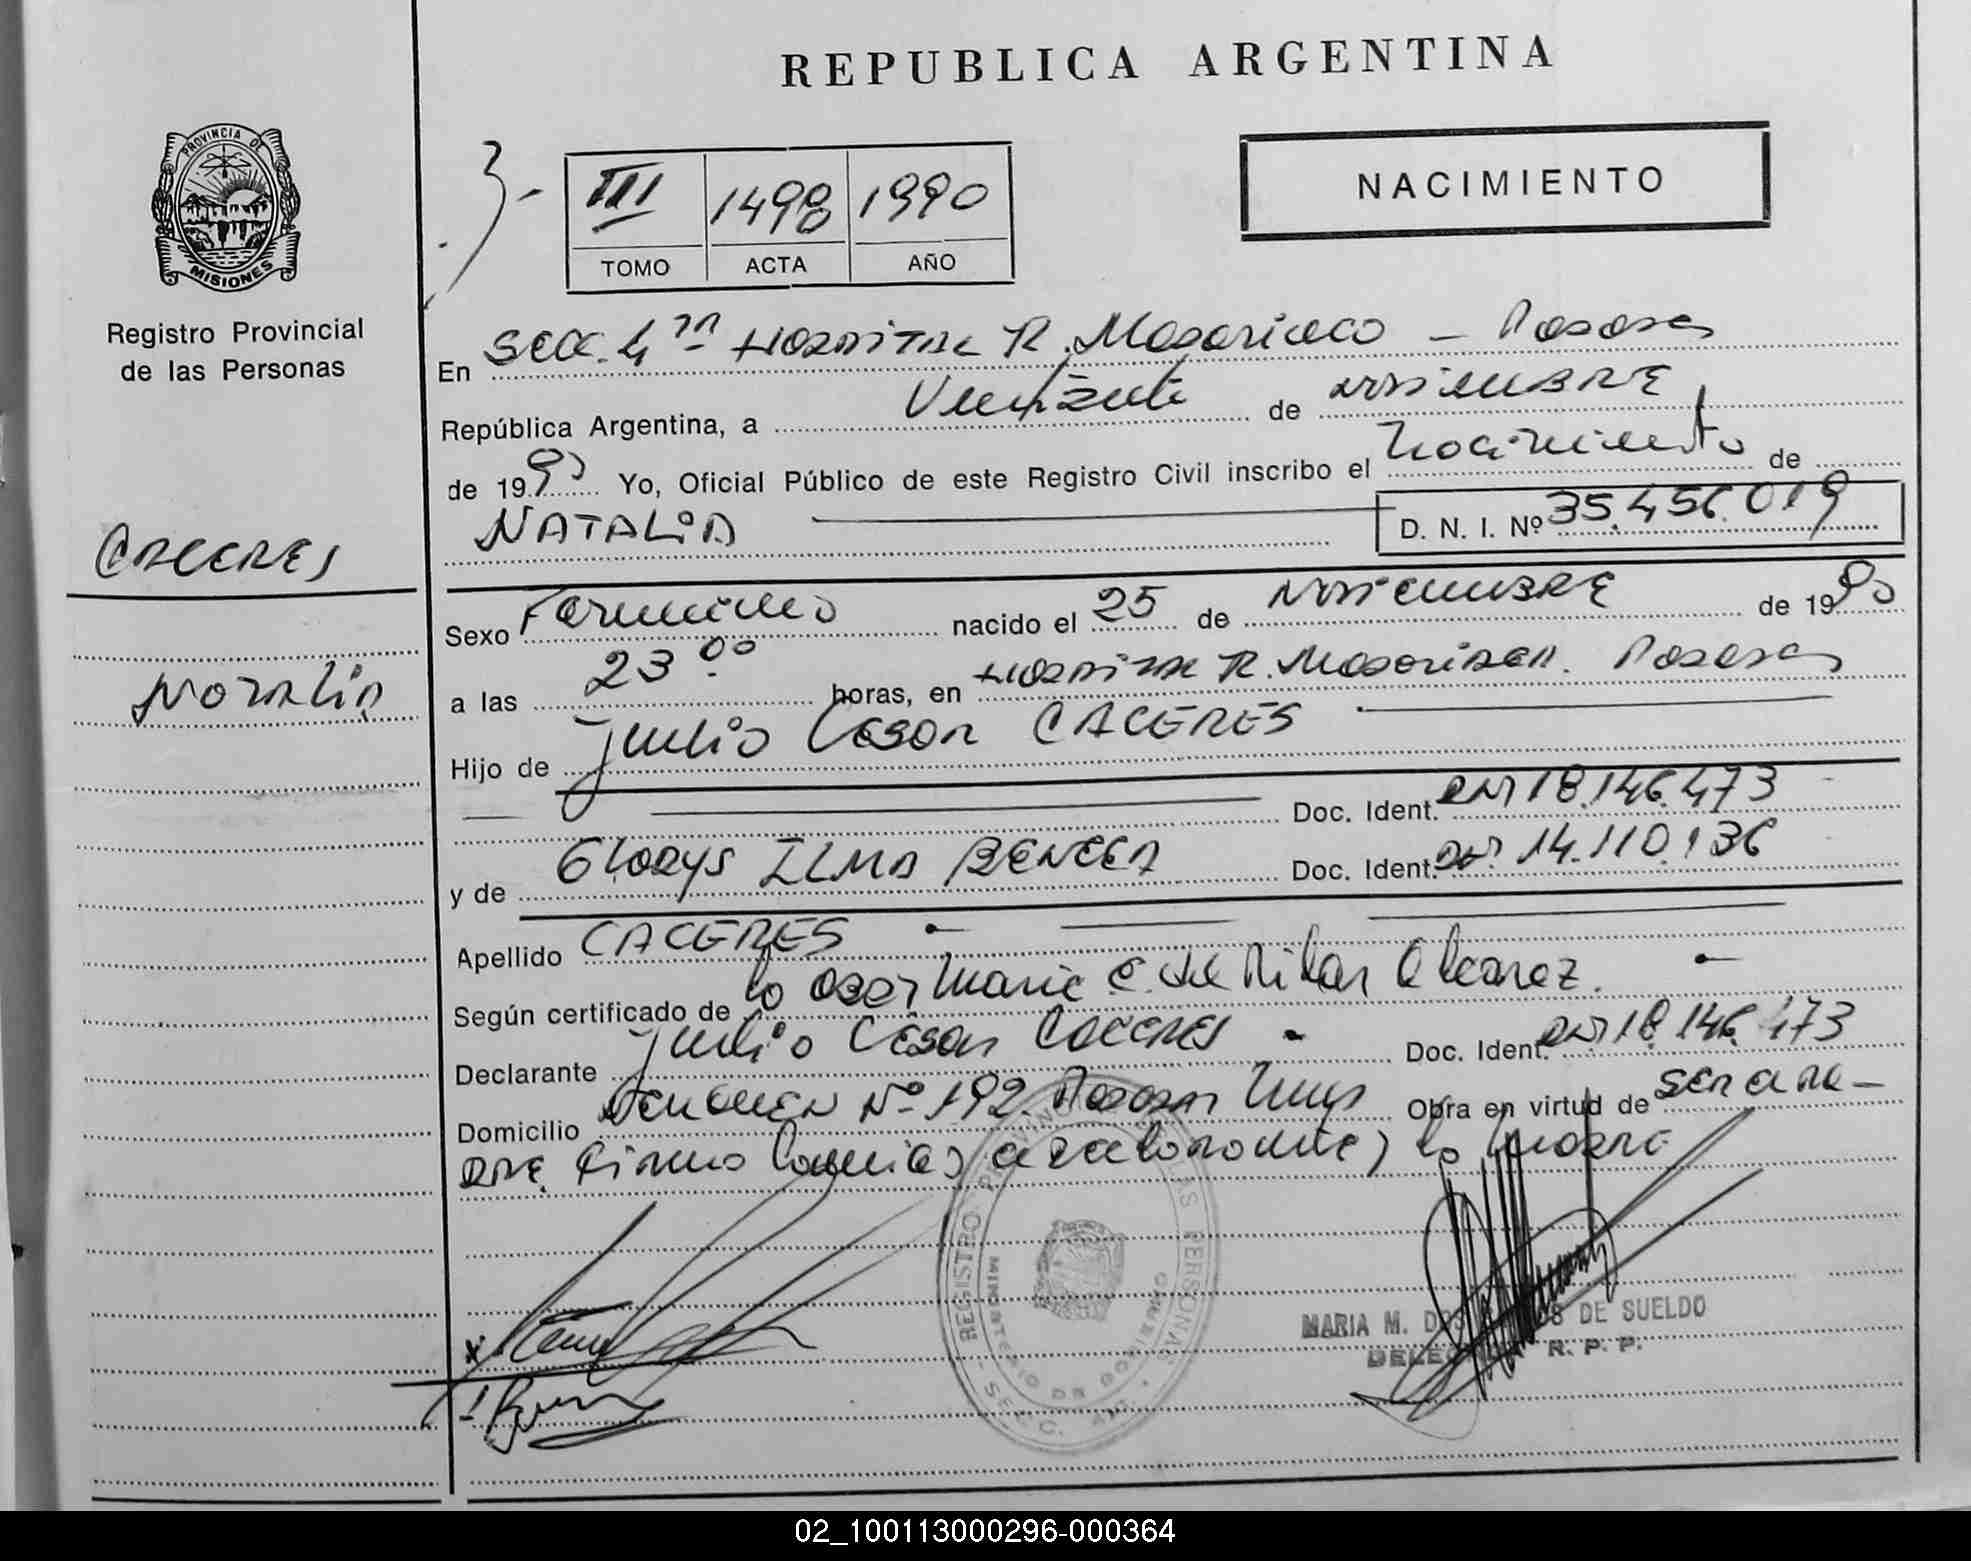 REPUBLICA ARGENTINA
PROVINCIA DE
MISIONES
Registro Provincial
de las Personas
3-
III 1498 1990
TOMO ACTA AÑO
NACIMIENTO
En Secc. 4ta Hospital R. Madariaga - Posadas
República Argentina, a Veintisiete de Noviembre
de 1990 Yo, Oficial Público de este Registro Civil inscribo el Nacimiento de
NATALIA D. N. I. Nº 35.456.019
CACERES
Natalia
Sexo Femenino nacido el 25 de Noviembre de 1990
a las 23 00 horas, en Hospital R. Madariaga. Posadas
Hijo de Julio Cesar CACERES
Doc. Ident. DNI 18.146.473
y de Gladys ILMA Doc. Ident. DNI. 14.110.136
Apellido CACERES
Según certificado de la Maria C. del Pilar Alcaraz.
Declarante Julio César Caceres Doc. Ident. DNI 18.146.473
Domicilio Nº 192. Posadas Obra en virtud de ser
firma la madre
REGISTRO PROVINCIAL DE LAS PERSONAS
MINISTERIO DE GOBIERNO
MARIA M. DE SUELDO
R. P. P.
02_100113000296-000364